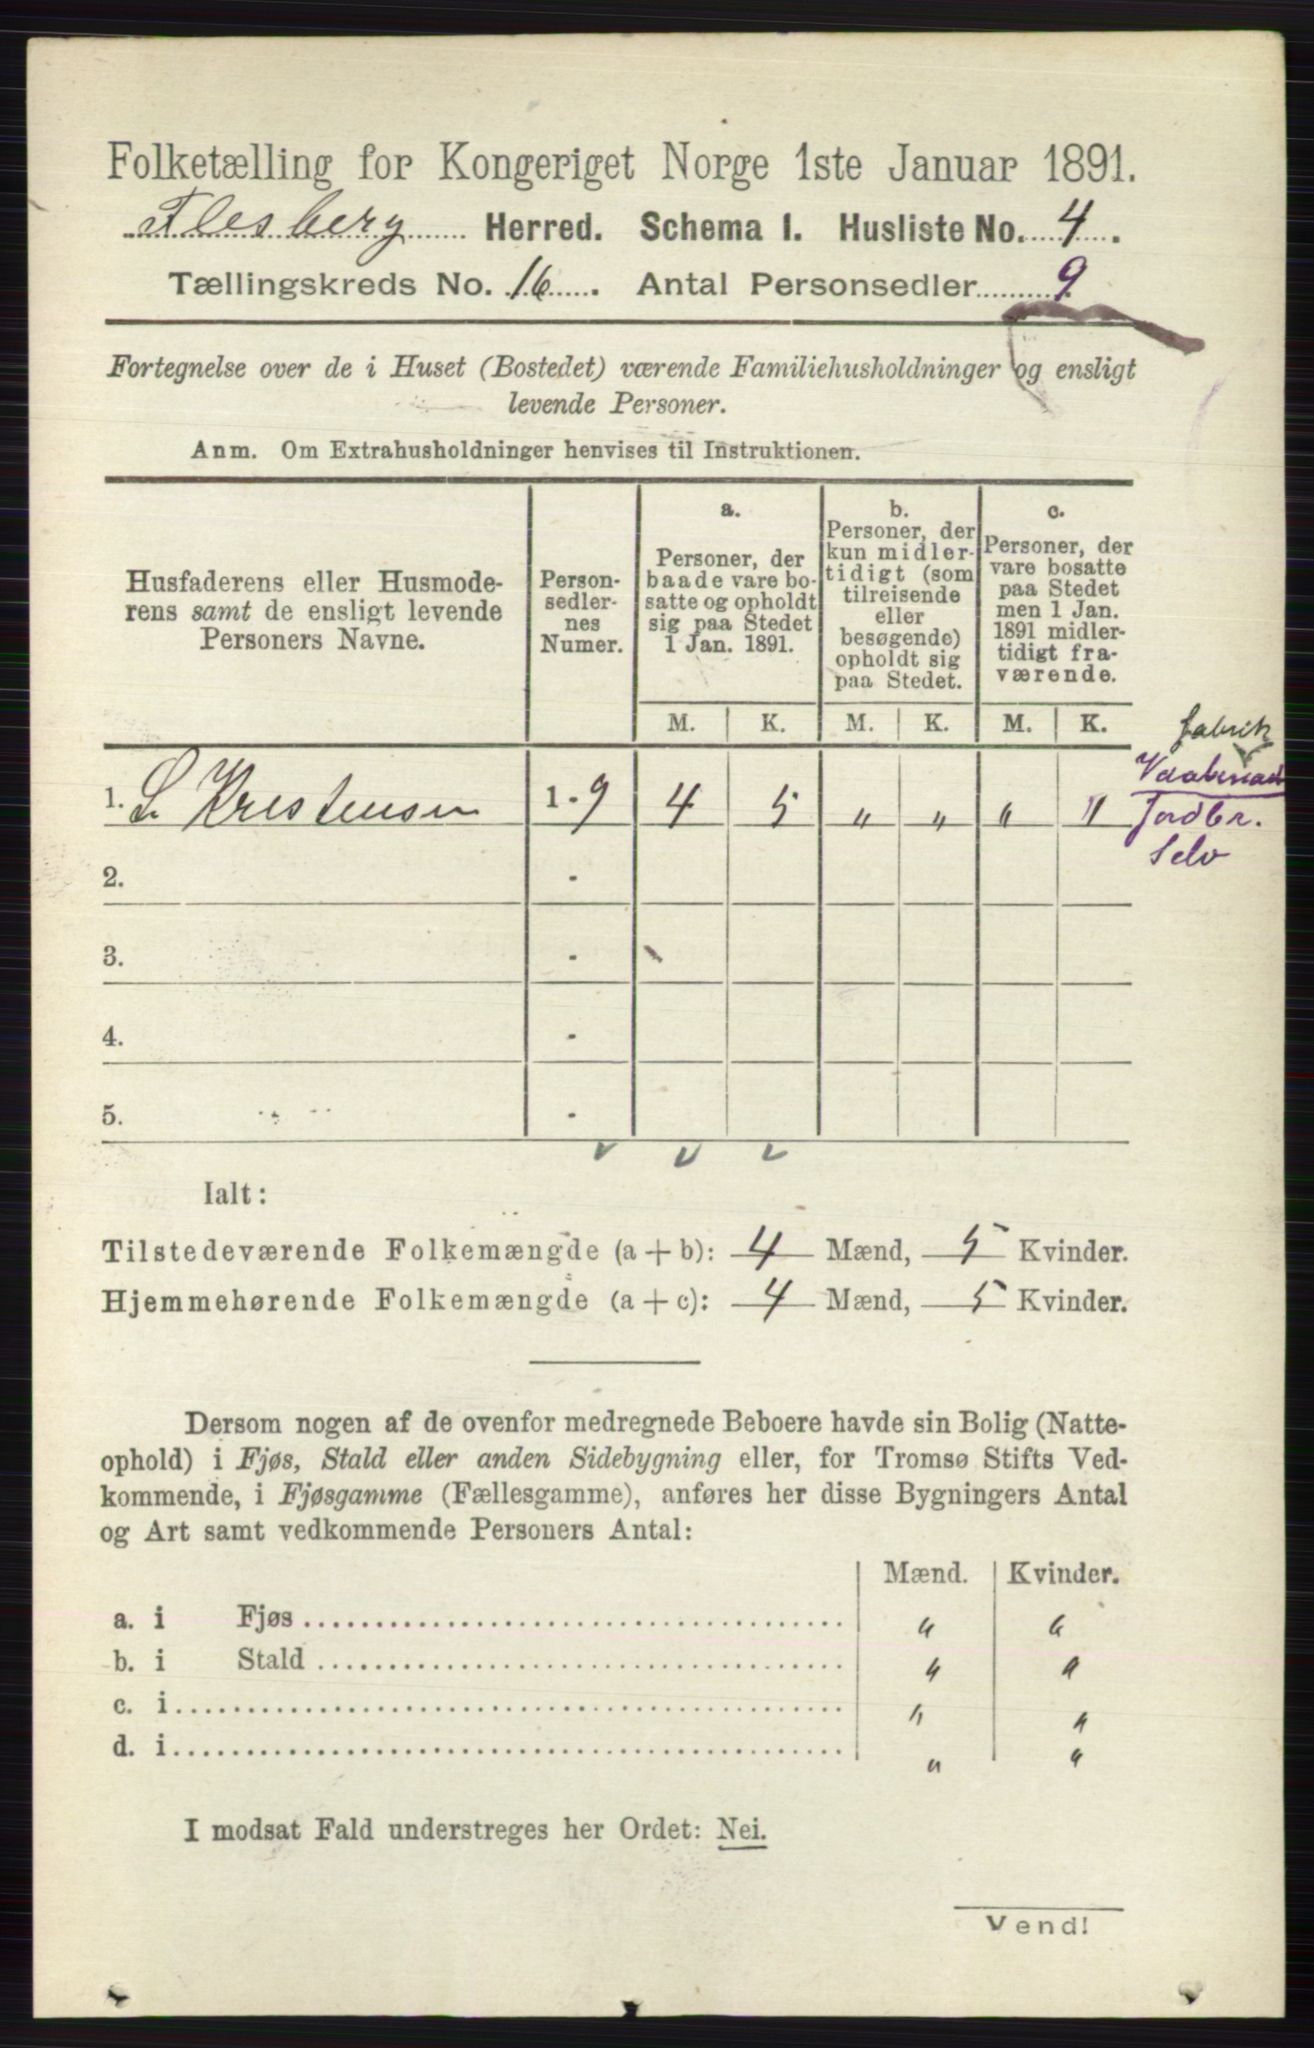 Folketælling for Kongeriget Norge 1ste Januar 1891.
Flesberg Herred. Schema I. Husliste No. 4.
Tællingskreds No. 16. Antal Personsedler 9
Fortegnelse over de i Huset (Bostedet) værende Familiehusholdninger og ensligt
levende Personer.
Anm. Om Extrahusholdninger henvises til Instruktionen.
Husfaderens eller Husmode-
rens samt de ensligt levende
Personers Navne.
Person-
sedler-
nes
Numer.
a.
Personer, der
baade vare bo-
satte og opholdt
sig paa Stedet
1 Jan. 1891.
b.
Personer, der
kun midler-
tidigt (som
tilreisende
eller
besøgende)
opholdt sig
paa Stedet.
c.
Personer, der
vare bosatte
paa Stedet
men 1 Jan.
1891 midler-
tidigt fra-
værende.
M. K. M. K. M. K.
fabrik
1. S. Kristensen 1-9 4 5 " " " "
Jordbr.
Selv
2. -
3. -
4. -
5. -
Ialt:
Tilstedeværende Folkemængde (a+b): 4 Mænd, 5 Kvinder.
Hjemmehørende Folkemængde (a+c): 4 Mænd, 5 Kvinder.
Dersom nogen af de ovenfor medregnede Beboere havde sin Bolig (Natte-
ophold) i Fjøs, Stald eller anden Sidebygning eller, for Tromsø Stifts Ved-
kommende, i Fjøsgamme (Fællesgamme), anføres her disse Bygningers Antal
og Art samt vedkommende Personers Antal:
Mænd. Kvinder.
a. i Fjøs " "
b. i Stald " "
c. i " "
d. i " "
I modsat Fald understreges her Ordet: Nei.
Vend!